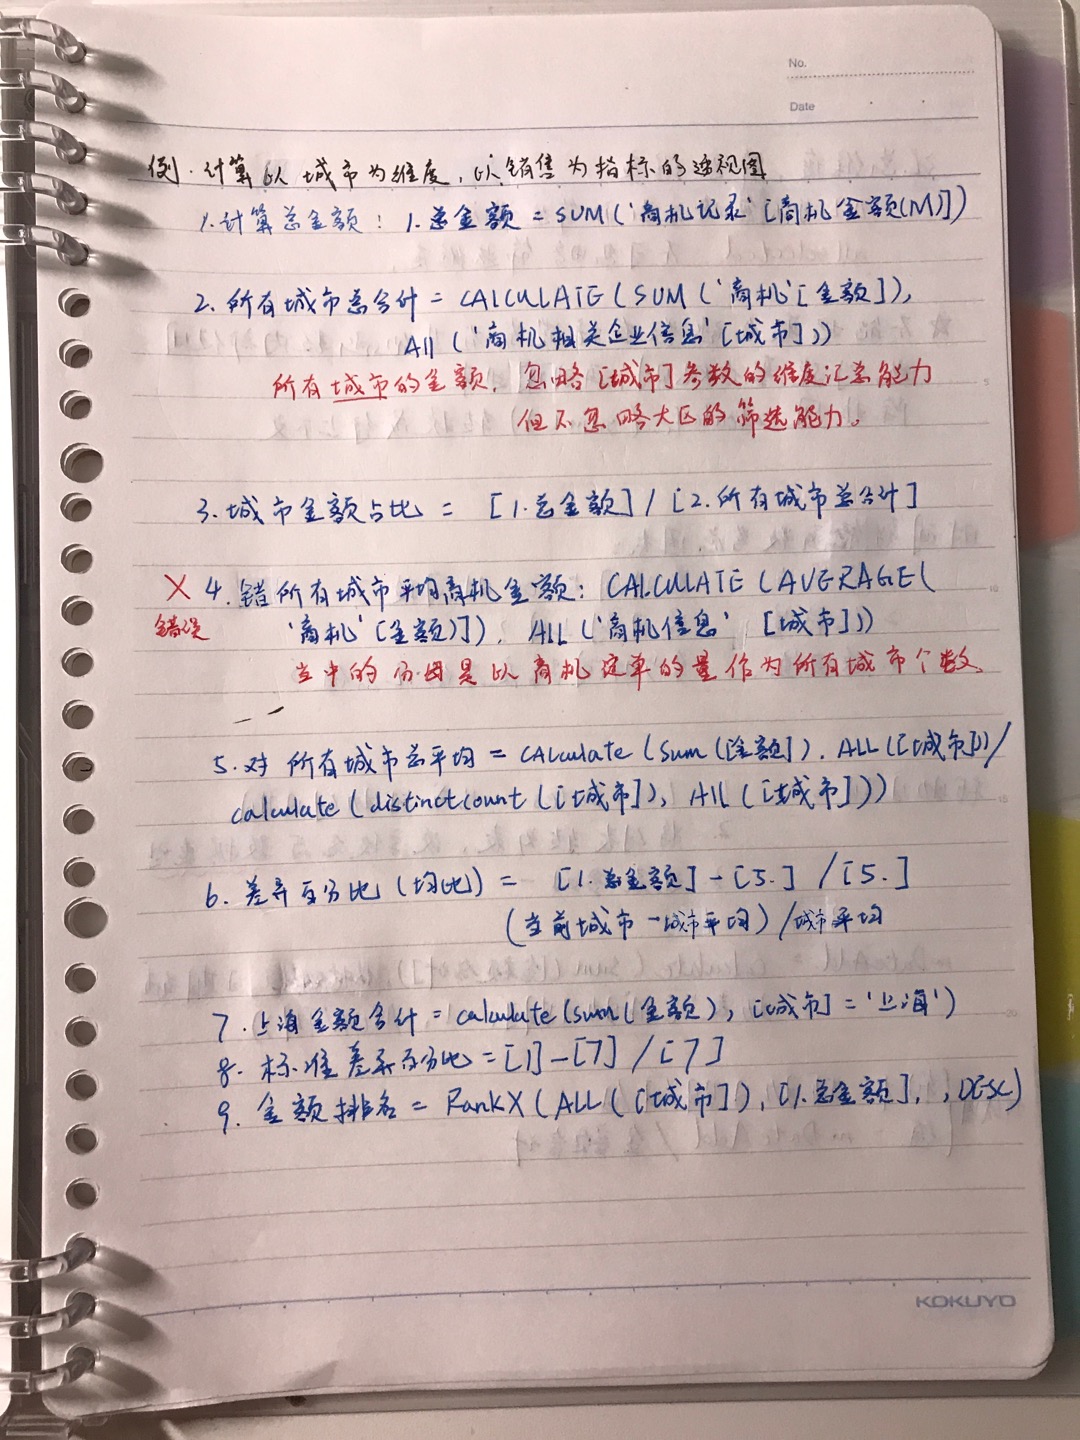 No.
Date
例. 计算以城市为维度, 以销售为指标的透视图
1.计算总金额: 1.总金额 = SUM('商机记录'[商机金额(M)])
2.所有城市总合计 = CALCULATE(SUM('商机'[金额]),
All('商机相关企业信息'[城市]))
所有城市的金额, 忽略[城市]参数的维度汇总能力
但不忽略大区的筛选能力。
3.城市金额占比 = [1.总金额] / [2.所有城市总合计]
X 4.错所有城市平均商机金额: CALCULATE(AVERAGE(
错误 '商机'[金额)]), ALL('商机信息' [城市]))
当中的分母是以商机定单的量作为所有城市个数.
5.对 所有城市总平均 = CAlculate(Sum([金额]), ALL([城市]))/
calculate(distinctcount([城市]), All([城市]))
6. 差异百分比(均比) = [1.总金额]-[5.] /[5.]
(当前城市-城市平均)/城市平均
7.上海金额合计 = calculate(sum(金额), [城市]='上海')
8. 标准差异百分比 = [1]-[7] / [7]
9. 金额排名 = RankX(ALL([城市]), [1.总金额], , DESC)
KOKUYO